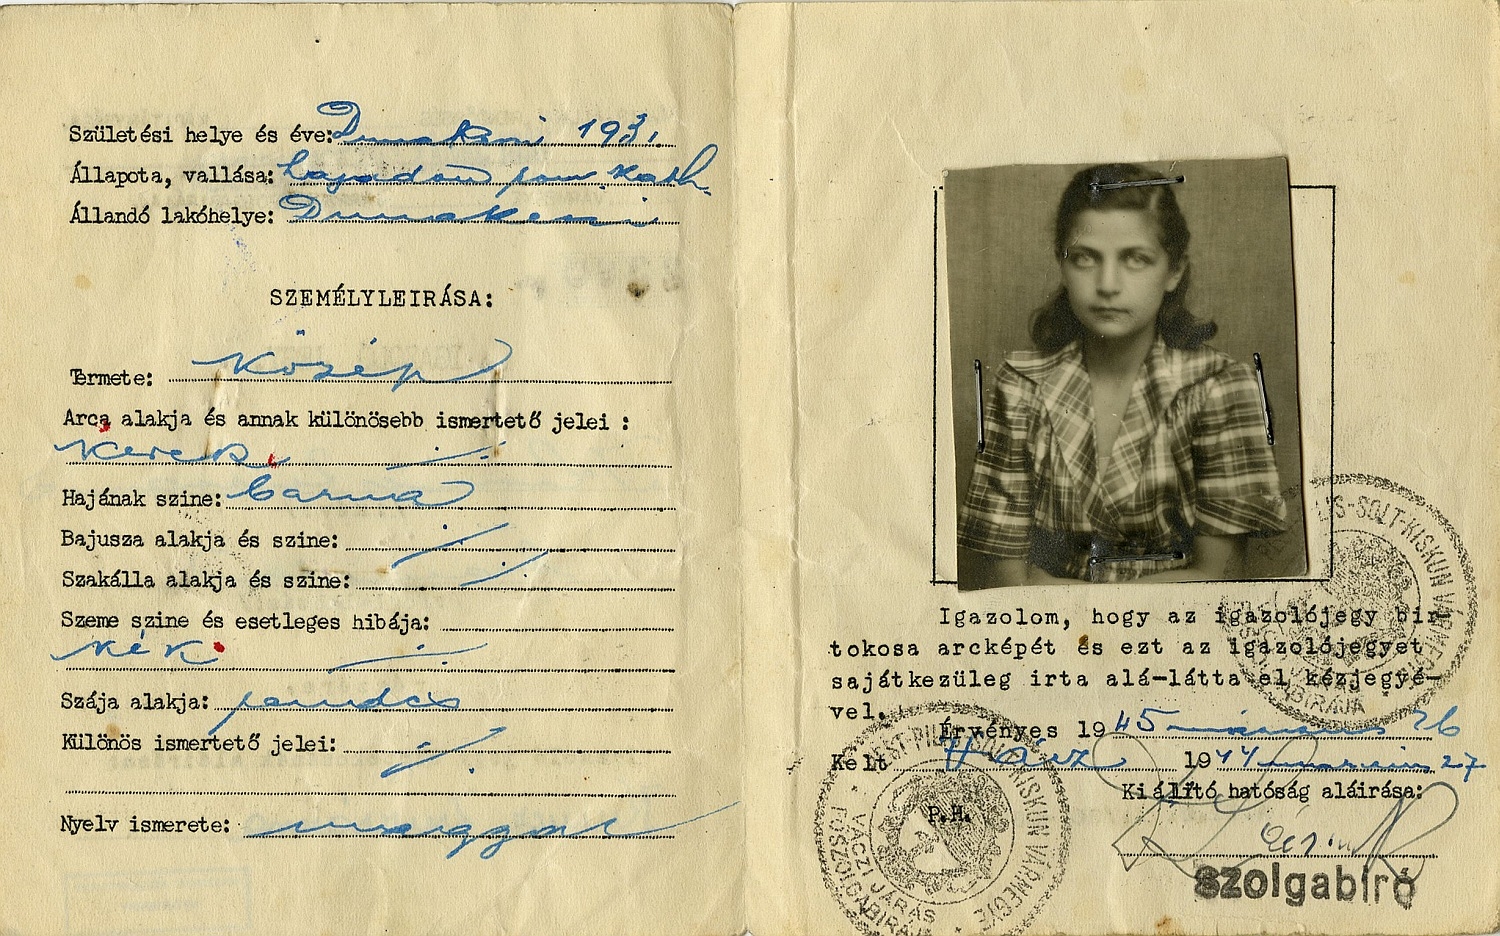 Születési helye és éve: Dunakeszi 1931.
Állapota, vallása: hajadon rom. kath.
Állandó lakóhelye: Dunakeszi
SZEMÉLYLEIRÁSA:
Termete: Közép
Arca alakja és annak különösebb ismertető jelei :
Kerek ./.
Hajának szine: barna
Bajusza alakja és szine: ./.
Szakálla alakja és szine: ./.
Szeme szine és esetleges hibája:
kék ./.
Szája alakja: rendes
Különös ismertető jelei: ./.
Nyelv ismerete: magyar
LIS-SOLT-KISKUN VÁRMEGYE
Igazolom, hogy az igazolójegy bir-
tokosa arcképét és ezt az igazolójegyet
sajátkezüleg irta alá-látta el kézjegyé-
vel.
Érvényes 1945 március 26
Kelt Vác 1944 március 27
Kiállitó hatóság aláirása:
P.H.
PEST-PILIS-SOLT-KISKUN VÁRMEGYE
VÁCZI JÁRÁS
FŐSZOLGABIRÁJA
szolgabiró